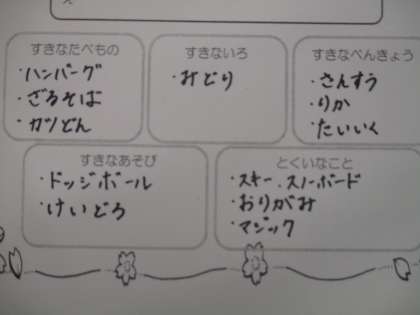 すきなたべもの
・ハンバーグ
・ざるそば
・カツどん
すきないろ
・みどり
すきなべんきょう
・さんすう
・りか
・たいいく
すきなあそび
・ドッジボール
・けいどろ
とくいなこと
・スキー、スノーボード
・おりがみ
・マジック